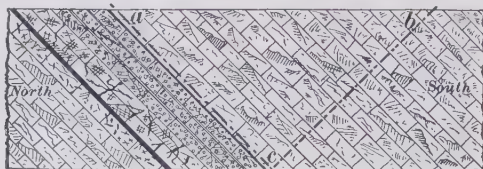 a
b
North
South
c